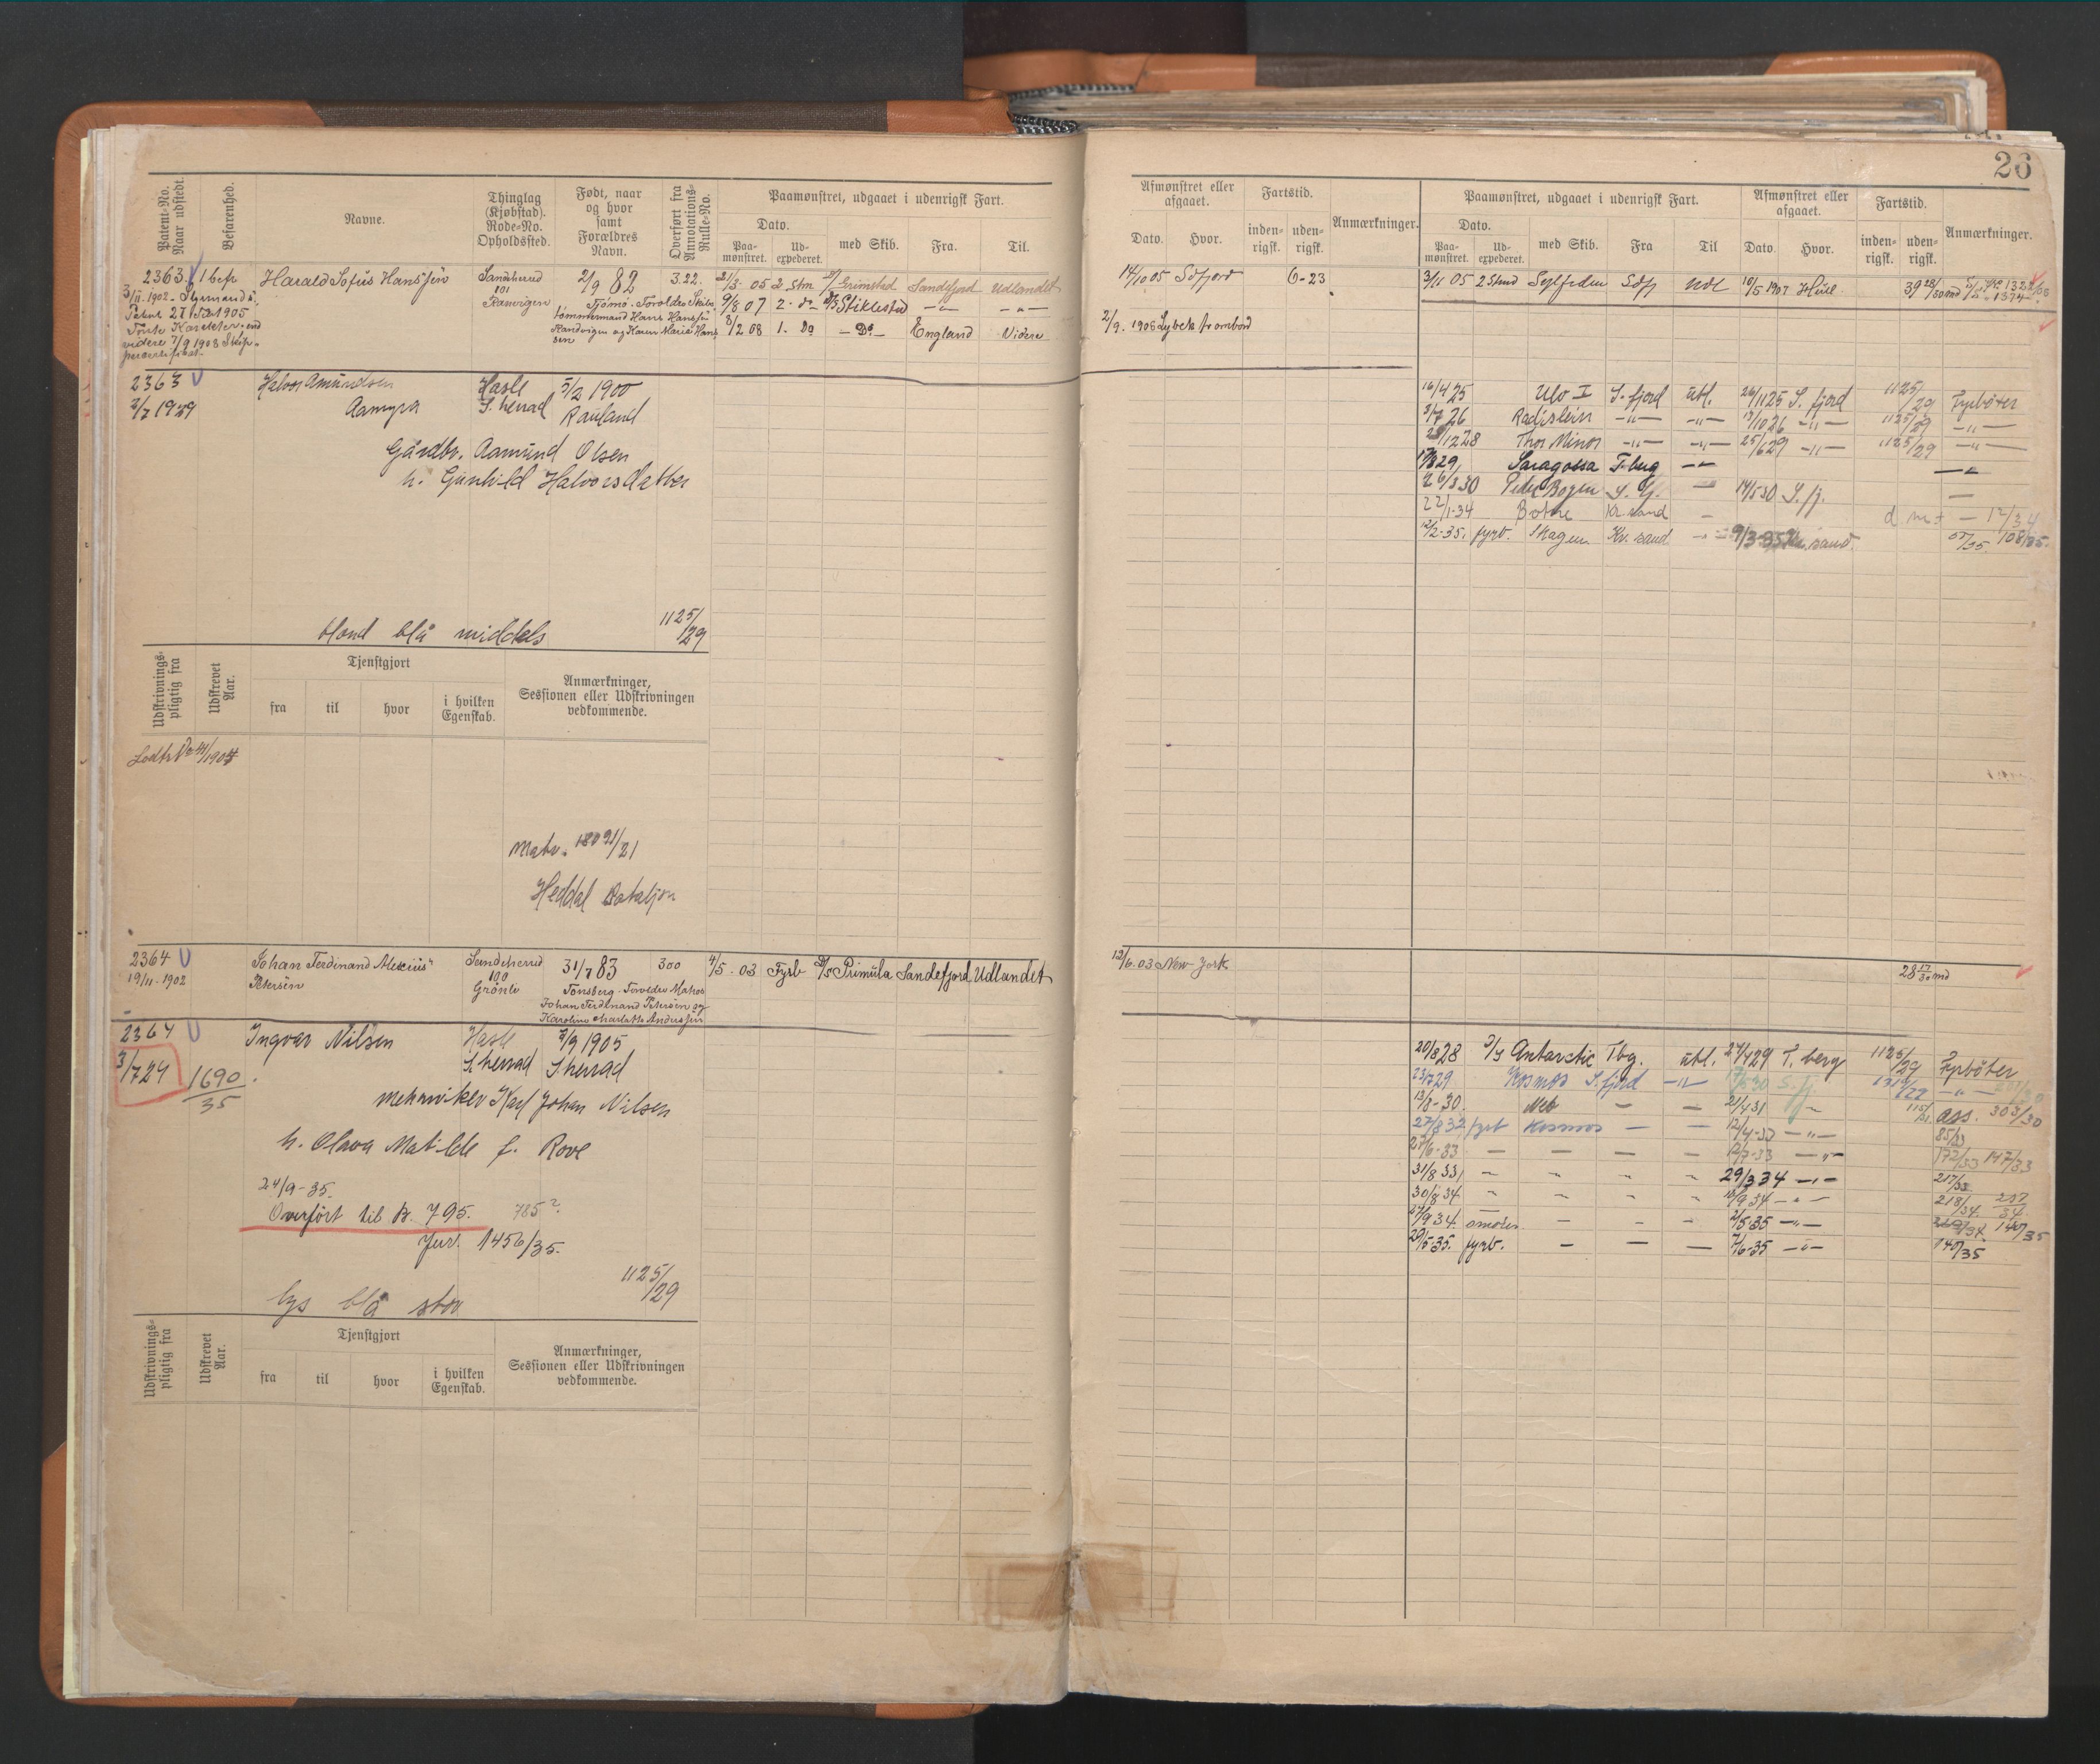 26
Patent-No. Naar udstedt.
Befarenhed.
Navne.
Thinglag (Kjøbstad). Rode-No. Opholdssted.
Født, naar og hvor samt Forældres Navn.
Overført fra Annotations-Rulle-No.
Paamønstret, udgaaet i udenrigsk Fart.
Dato.
Paa-mønstret.
Ud-expederet.
med Skib.
Fra.
Til.
Afmønstret eller afgaaet.
Dato.
Hvor.
Fartstid.
inden-rigsk.
uden-rigsk.
Anmærkninger.
Paamønstret, udgaaet i udenrigsk Fart.
Dato.
Paa-mønstret.
Ud-expederet.
med Skib.
Fra
Til
Afmønstret eller afgaaet.
Dato.
Hvor.
Fartstid.
inden-rigsk.
uden-rigsk.
Anmærkninger.
2363. 1 befr Harald Sofus Hanssen Sandeherred 2/9 82 3.22. 21/3 05 2 Stm Grimstad Sandefjord Udlandet
14/10 05 Sdfjord 6-23 3/11 05 2 Stmd Sylfiden Sdfj Udl 10/5 1907 Hull
3/11. 1902 - Styrmands
101 Ranvigen Tjömö. Foreldre Skibs
9/8 07 2. do Stiklestad
Patent 27 1905
tømmermand Hans Hanssen
8/2 08 1. Do - Do - England Videre
2/9. 1908 Lybek frombord
Ranvigen og Karen Maria Hans
sen
videre 7/9 1908 Skip-
2363 Halvor Amundsen Hasle 5/2 1900
2/7 1929 Aamyra S. herred Rauland
Gårdbr. Aamund Olsen
h. Gunhild Halvorsdatter
16/4 25 Ulv I S. fjord utl. 26/11 25 S. fjord 1125/29 Fyrbøter
3/7 26 Radjslein -"- -"- 17/10 26 -"- 1125/29 -"-
28/12 28 Thor Minor -"- -"- 25/6 29 -"- 1125/29 -"-
17/8 29, Saragossa T-berg -"- -"-
26/3 30 Peder Bogen S. fj. - 14/5 30 S. fj. -
22/1-34 Botne Kr. sand - 12/34
12/2-35. fyrb. Skagen Kr. sand. 9/3-35 Kr. sand. 55/35. 108/35.
blond blå middels 1125/29
Udskrivnings-pligtig fra
Udskrevet Aar.
Tjenstgjort
fra
til
hvor
i hvilken Egenskab.
Anmærkninger, Sessionen eller Udskrivningen vedkommende.
Matr. 180 91/21
Heddal Bataljon
2364 Johan Ferdinand Alexius Sandeherred 31/7 83 300 4/5. 03 Fyrb D/s Primula Sandefjord Udlandet
12/6. 03 New-York 28 17/30 md
19/11-1902 Petersen 100 Grönli Tönsberg. Foreldre Matros
Johan Ferdinand Petersen og
Karoline Charlotte Anderssen
2364 Ingvar Nilsen Hasle 7/9 1905
3/7 29 S. herred S. herred
1690/35
Mekaniker Karl Johan Nilsen
h. Olava Matilde f. Rove
24/9-35.
Overført til B. 795. 785?
Jur. 1456/35.
1125/29
lys blå stor
20/8 28 D/S Antarctic Tbg. utl. 24/4 29 T. berg 1125/29 Fyrbøter
23/7 29 Kosmos S. fjord -"- 17/5 30 S. fj. -"-
13/8-30. Neb - - 21/4 31 ass. 303/30
27/8 32 fyrb Kosmos - - 12/4-33 -"- 85/33
21/6-33 - - - - 12/7-33 -"- 172/33 147/33
31/8 33 " " " " 29/3 34 -"- 217/33
30/8 34 " " " " 18/9 34 -"- 218/34. 237/34
27/9 34. smører - - - 2/5 35 -"- 140/35
29/5-35. fyrb. - - - 7/6-35 -"- 140/35
Udskrivnings-pligtig fra
Udskrevet Aar.
Tjenstgjort
fra
til
hvor
i hvilken Egenskab.
Anmærkninger, Sessionen eller Udskrivningen vedkommende.